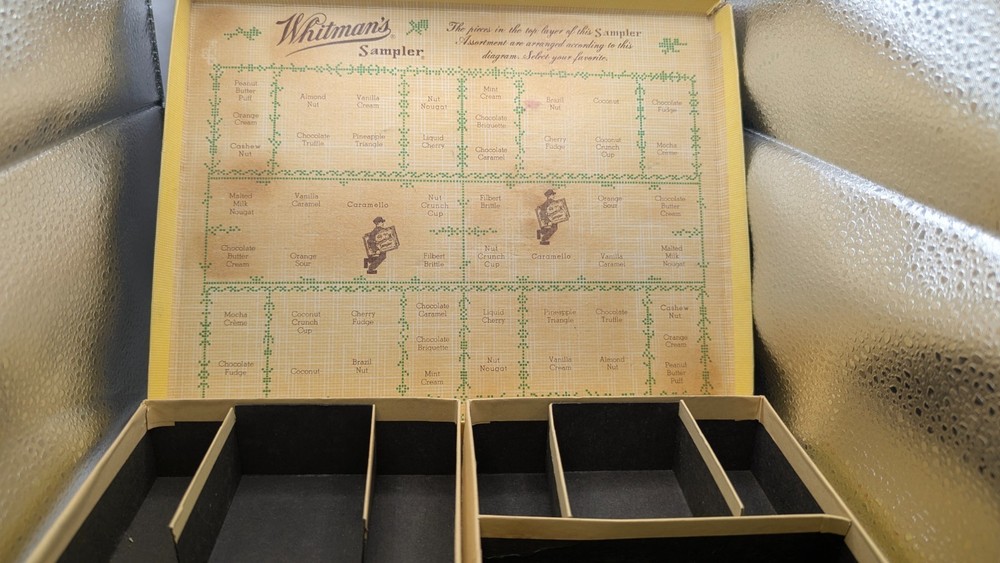 Whitman's®
Sampler®
The pieces in the top layer of this Sampler
Assortment are arranged according to this
diagram. Select your favorite.
Peanut
Butter
Puff
Orange
Cream
Cashew
Nut
Almond
Nut
Chocolate
Truffle
Vanilla
Cream
Pineapple
Triangle
Nut
Nougat
Liquid
Cherry
Mint
Cream
Chocolate
Briquette
Chocolate
Caramel
Brazil
Nut
Cherry
Fudge
Coconut
Coconut
Crunch
Cup
Chocolate
Fudge
Mocha
Crème
Malted
Milk
Nougat
Chocolate
Butter
Cream
Vanilla
Caramel
Orange
Sour
Caramello
Nut
Crunch
Cup
Filbert
Brittle
Filbert
Brittle
Nut
Crunch
Cup
Caramello
Orange
Sour
Vanilla
Caramel
Chocolate
Butter
Cream
Malted
Milk
Nougat
Mocha
Crème
Chocolate
Fudge
Coconut
Crunch
Cup
Coconut
Cherry
Fudge
Brazil
Nut
Chocolate
Caramel
Chocolate
Briquette
Mint
Cream
Liquid
Cherry
Nut
Nougat
Pineapple
Triangle
Vanilla
Cream
Chocolate
Truffle
Almond
Nut
Cashew
Nut
Orange
Cream
Peanut
Butter
Puff